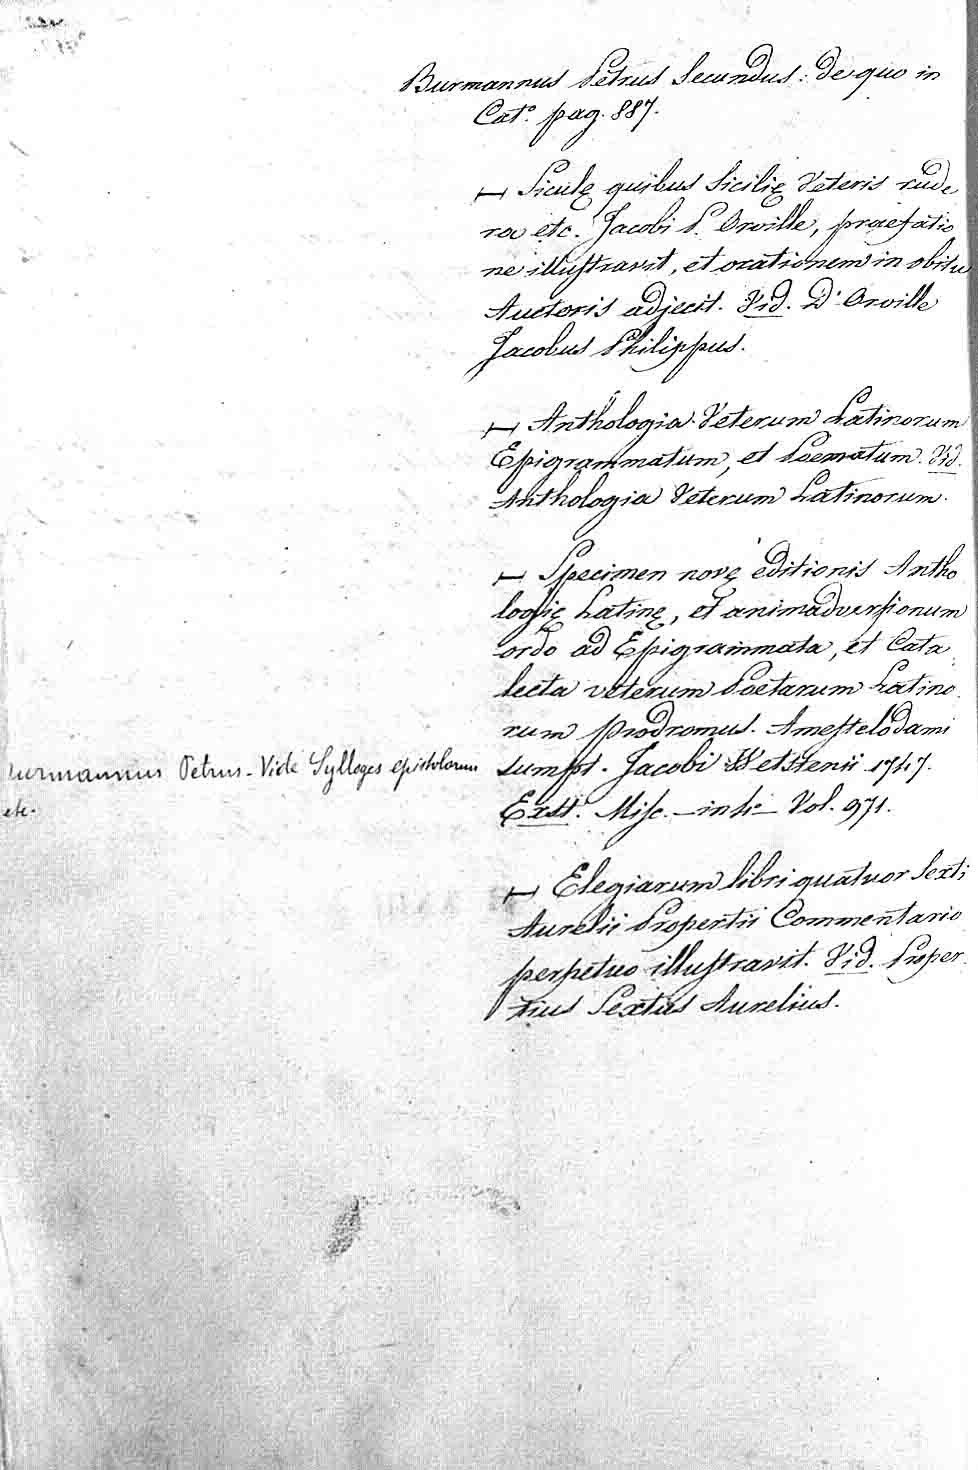 Burmannus Petrus Secundus: de quo in
Cat.º pag. 887.
— Siculę quibus Sicilię Veteris rude
ra etc. Jacobi P. Orville, praefatio
ne illustravit, et orationem in obitu
Auctoris adjecit. Vid. D'Orville
Jacobus Philippus.
— Anthologia Veterum Latinorum
Epigrammatum, et Poematum. Vid.
Anthologia Veterum Latinorum.
— Specimen novę editionis Antho
logię Latinę, et animadversionum
ordo ad Epigrammata, et Cata
lecta veterum Poetarum Latino
rum prodromus. Amestelodami
sumpt. Jacobi Wetstenii 1747.
Exst. Misc. — in 4º — Vol. 971.
— Elegiarum libri quatuor Sexti
Aurelii Propertii Commentario
perpetuo illustravit. Vid. Proper
tius Sextus Aurelius.
urmannus Petrus - Vide Sylloges epistolarum
etc.